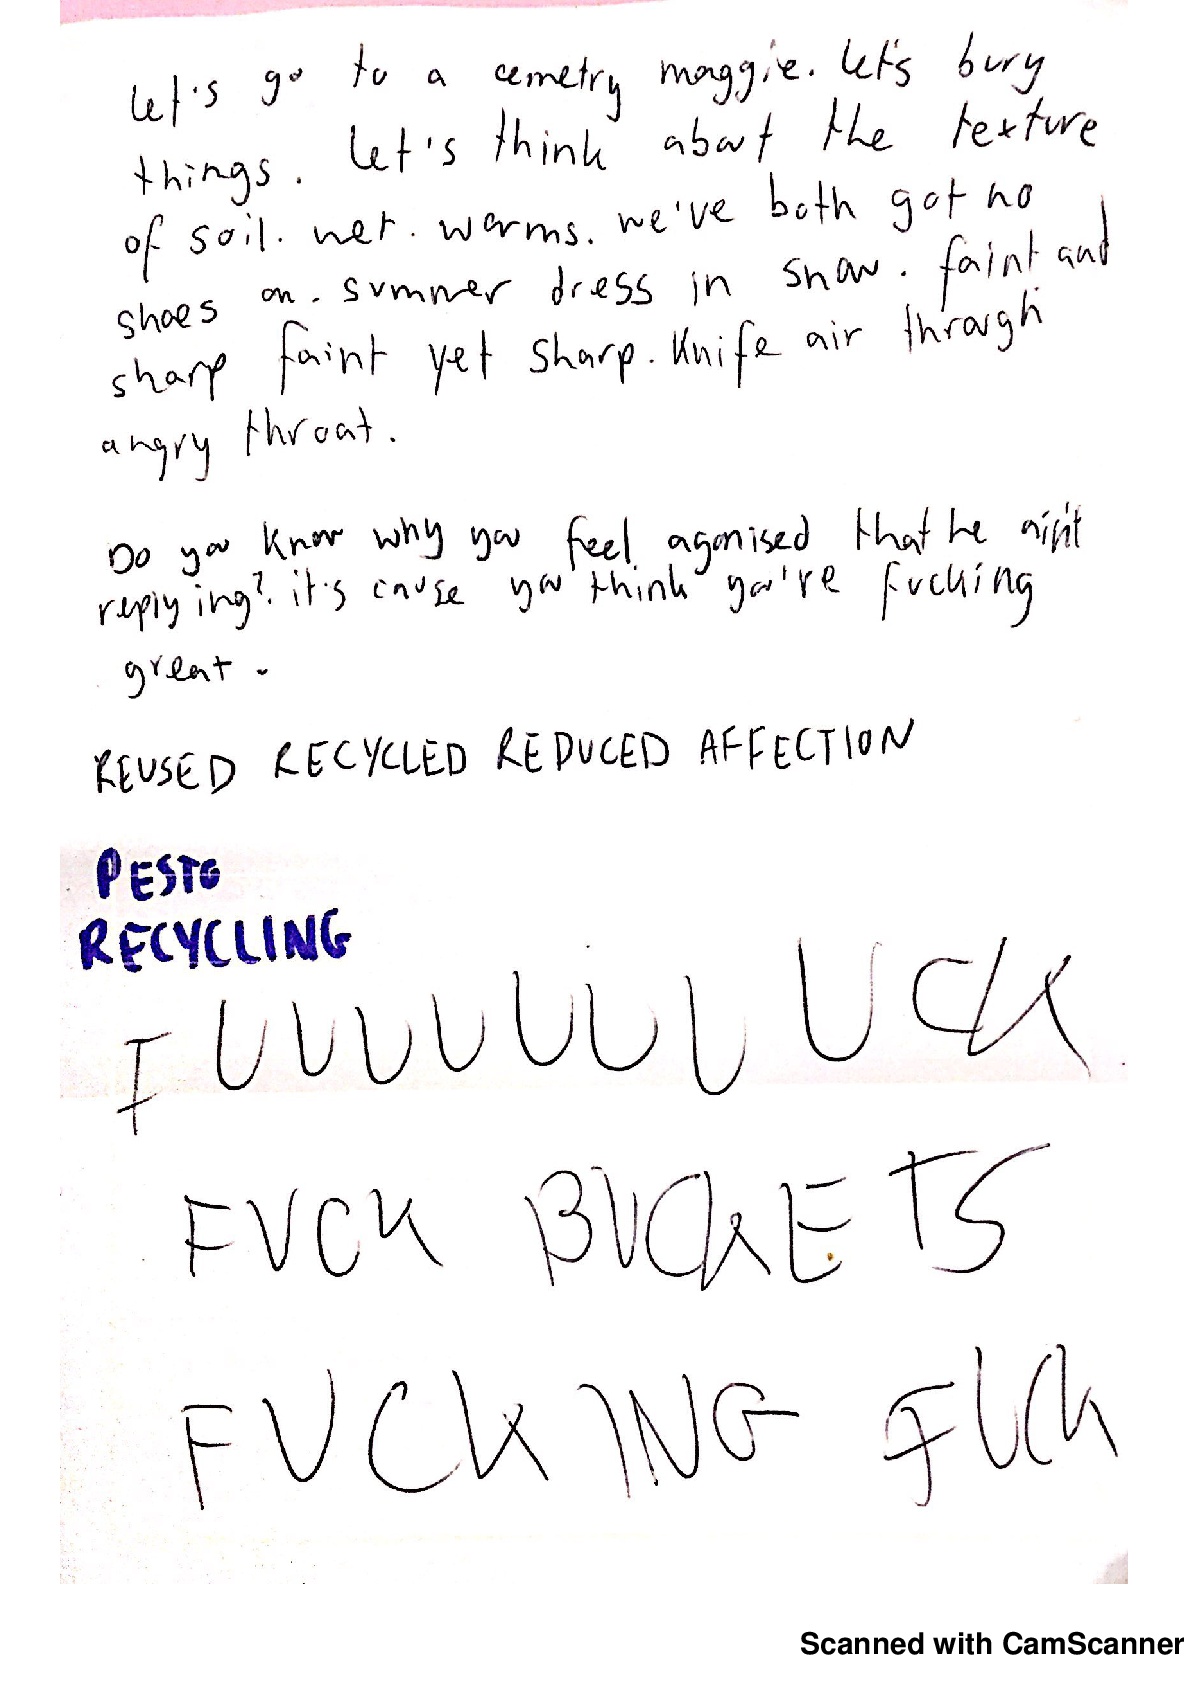 let's go to a cemetry maggie. let's bury
things. let's think about the texture
of soil. wet. worms. we've both got no
shoes on. summer dress in snow. faint and
sharp faint yet sharp. Knife air through
angry throat.
Do you know why you feel agonised that he ain't
replying? it's cause you think you're fucking
great.
REUSED RECYCLED REDUCED AFFECTION
PESTO
RECYCLING
FUUUUUUUUCK
FUCK BUCKETS
FUCKING FUCK
Scanned with CamScanner